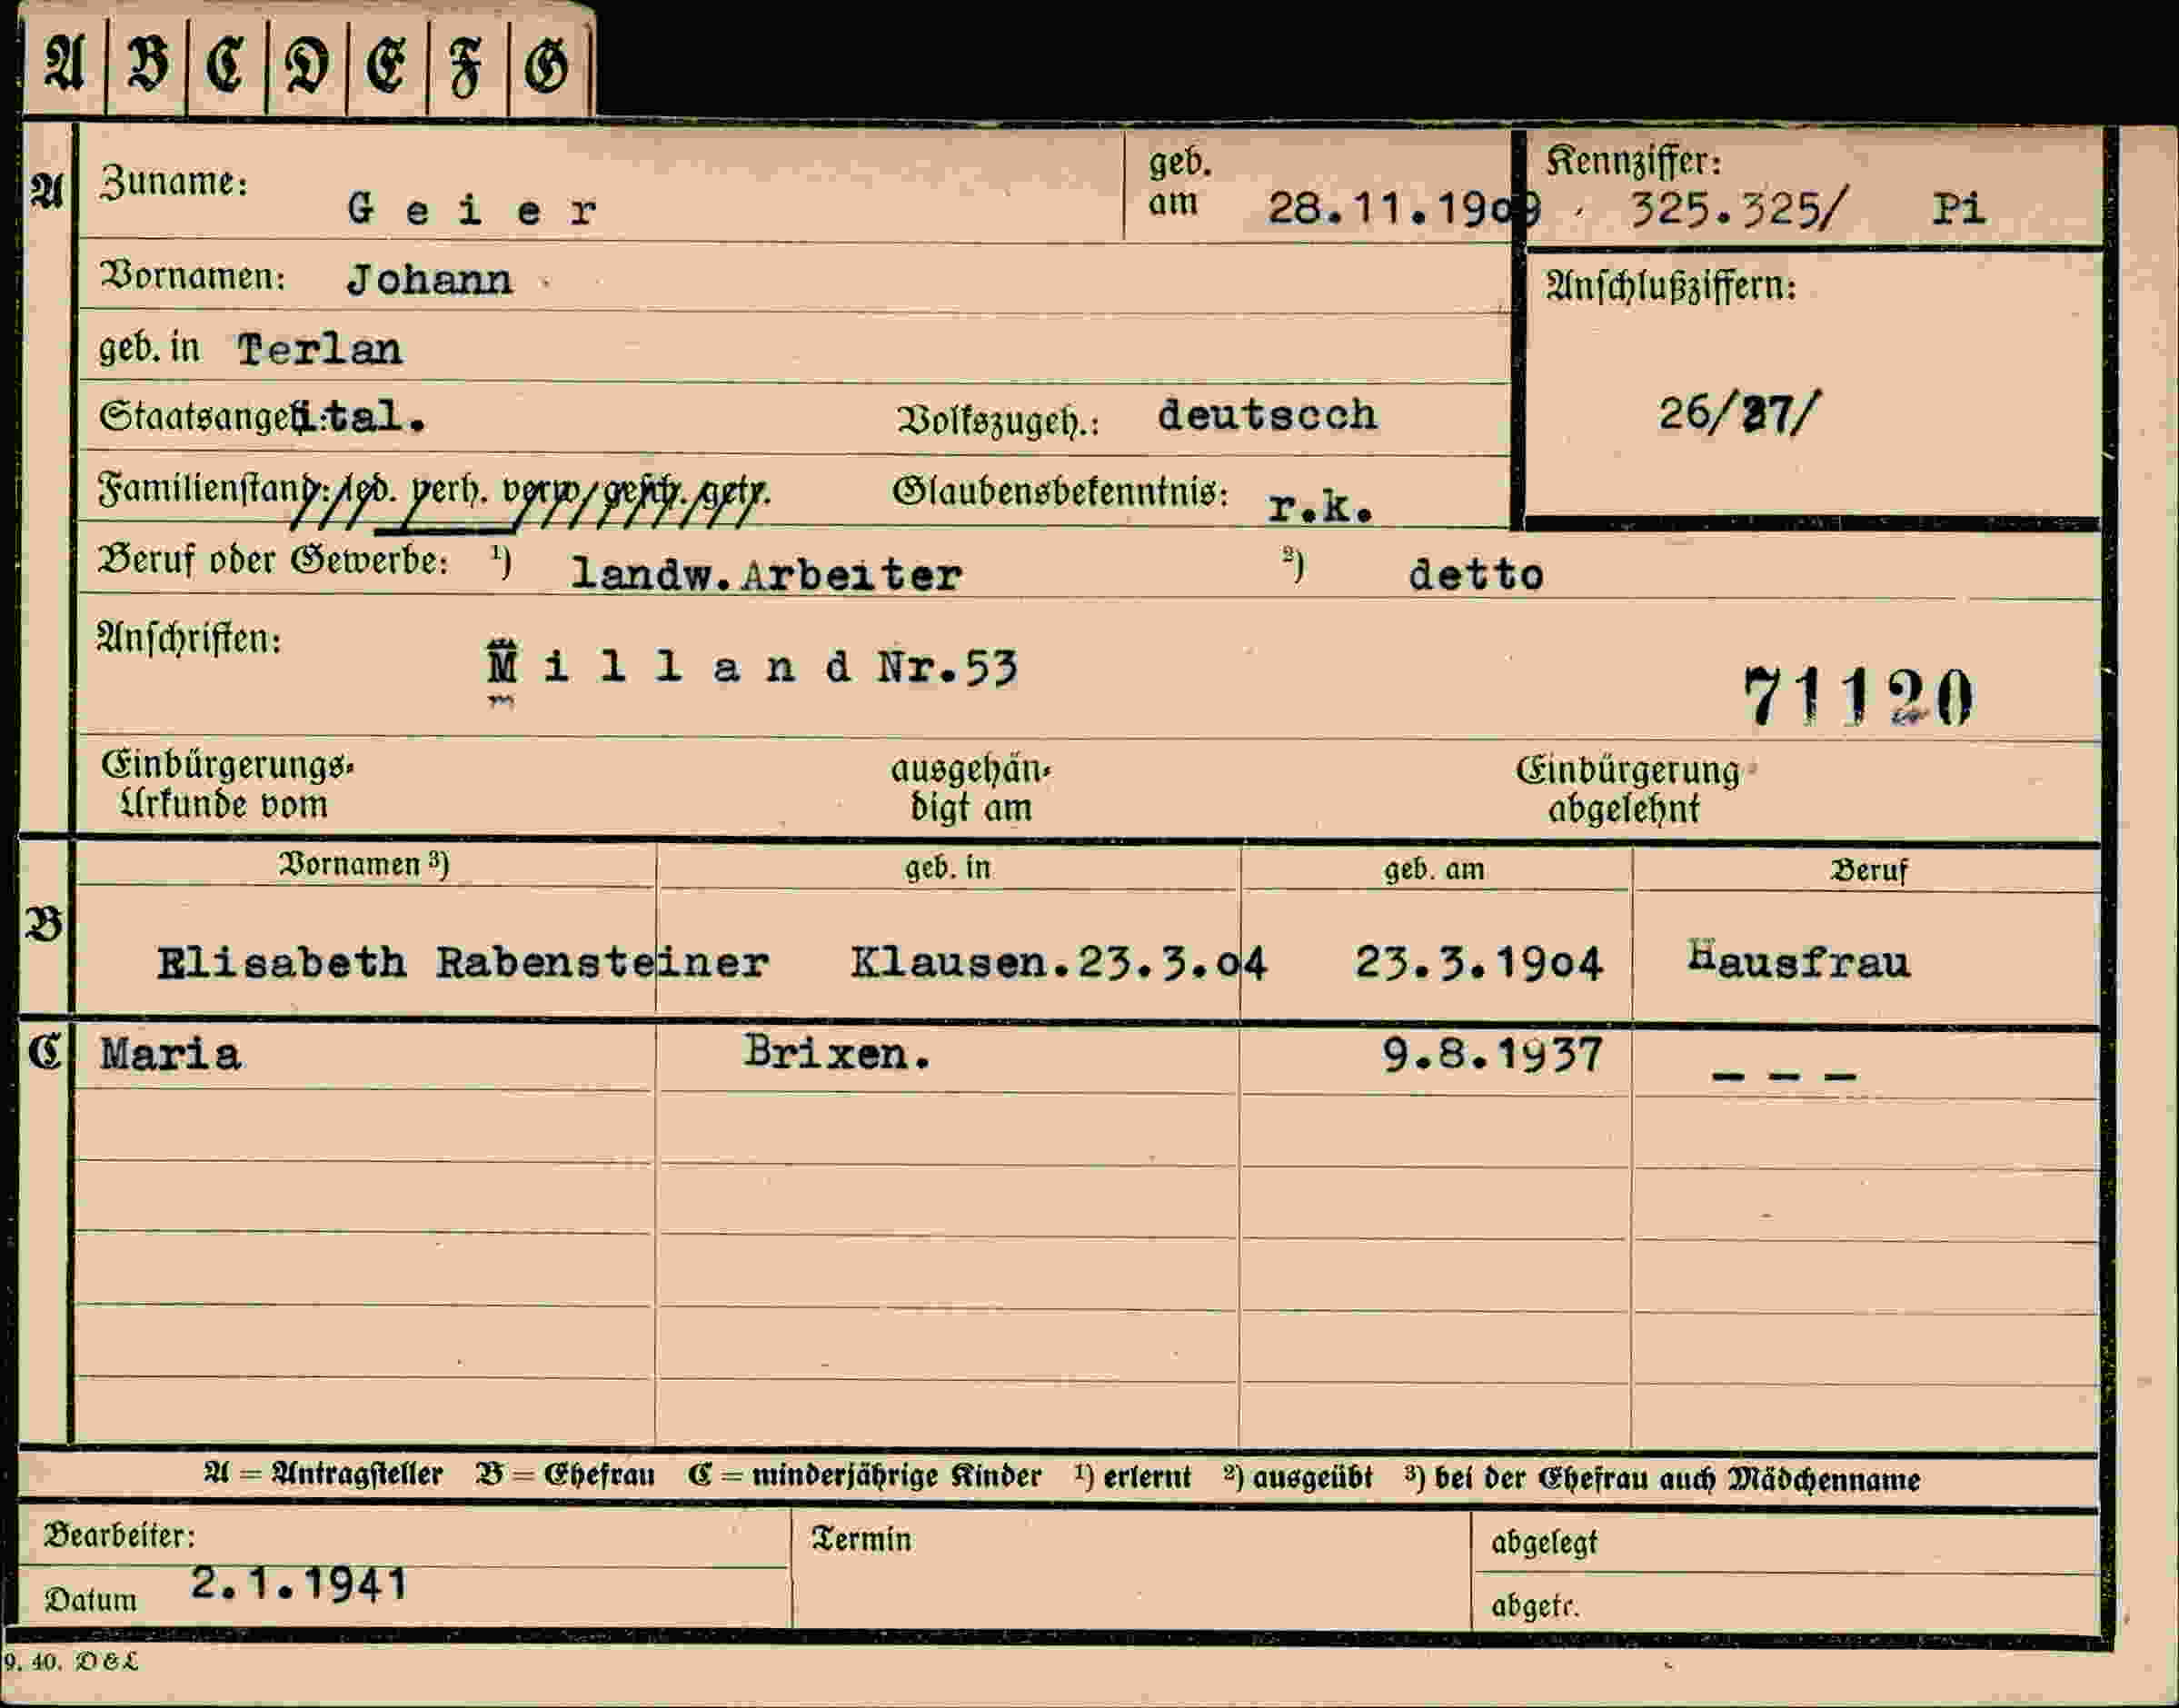 A B C D E F G
A Zuname: Geier geb. am 28.11.19o9 Kennziffer: 325.325/ Pi
Vornamen: Johann
Anschlußziffern:
geb. in Terlan
26/27/
Staatsangeh.: ital. Volkszugeh.: deutscch
Familienstand: led. verh. verw. gesch. getr. Glaubensbekenntnis: r.k.
Beruf oder Gewerbe: ¹) landw.Arbeiter ²) detto
Anschriften: Milland Nr.53 71120
Einbürgerungs- ausgehän- Einbürgerung
Urkunde vom digt am abgelehnt
Vornamen ³) geb. in geb. am Beruf
B Elisabeth Rabensteiner Klausen.23.3.o4 23.3.19o4 Hausfrau
C Maria Brixen. 9.8.1937 ---
A = Antragsteller B = Ehefrau C = minderjährige Kinder ¹) erlernt ²) ausgeübt ³) bei der Ehefrau auch Mädchenname
Bearbeiter: Termin abgelegt
Datum 2.1.1941 abgetr.
9. 40. D&L